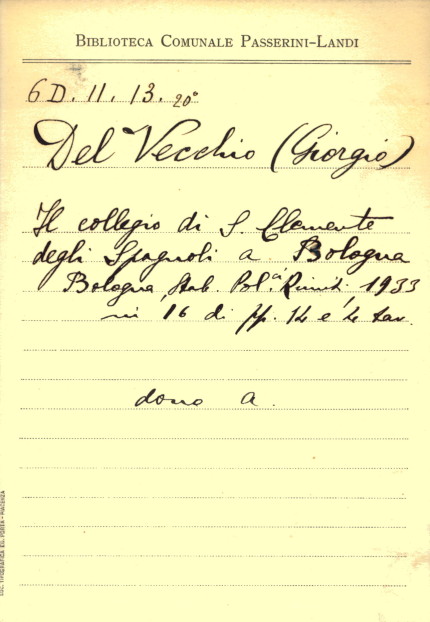 BIBLIOTECA COMUNALE PASSERINI-LANDI
6 D. 11. 13. 20°
Del Vecchio (Giorgio)
Il collegio di S. Clemente
degli Spagnoli a Bologna
Bologna, Stab. Pol.ci Riuniti, 1933
in 16 di pp. 14 e 4 tav.
dono A.
SOC. TIPOGRAFICA ED. PORTA - PIACENZA